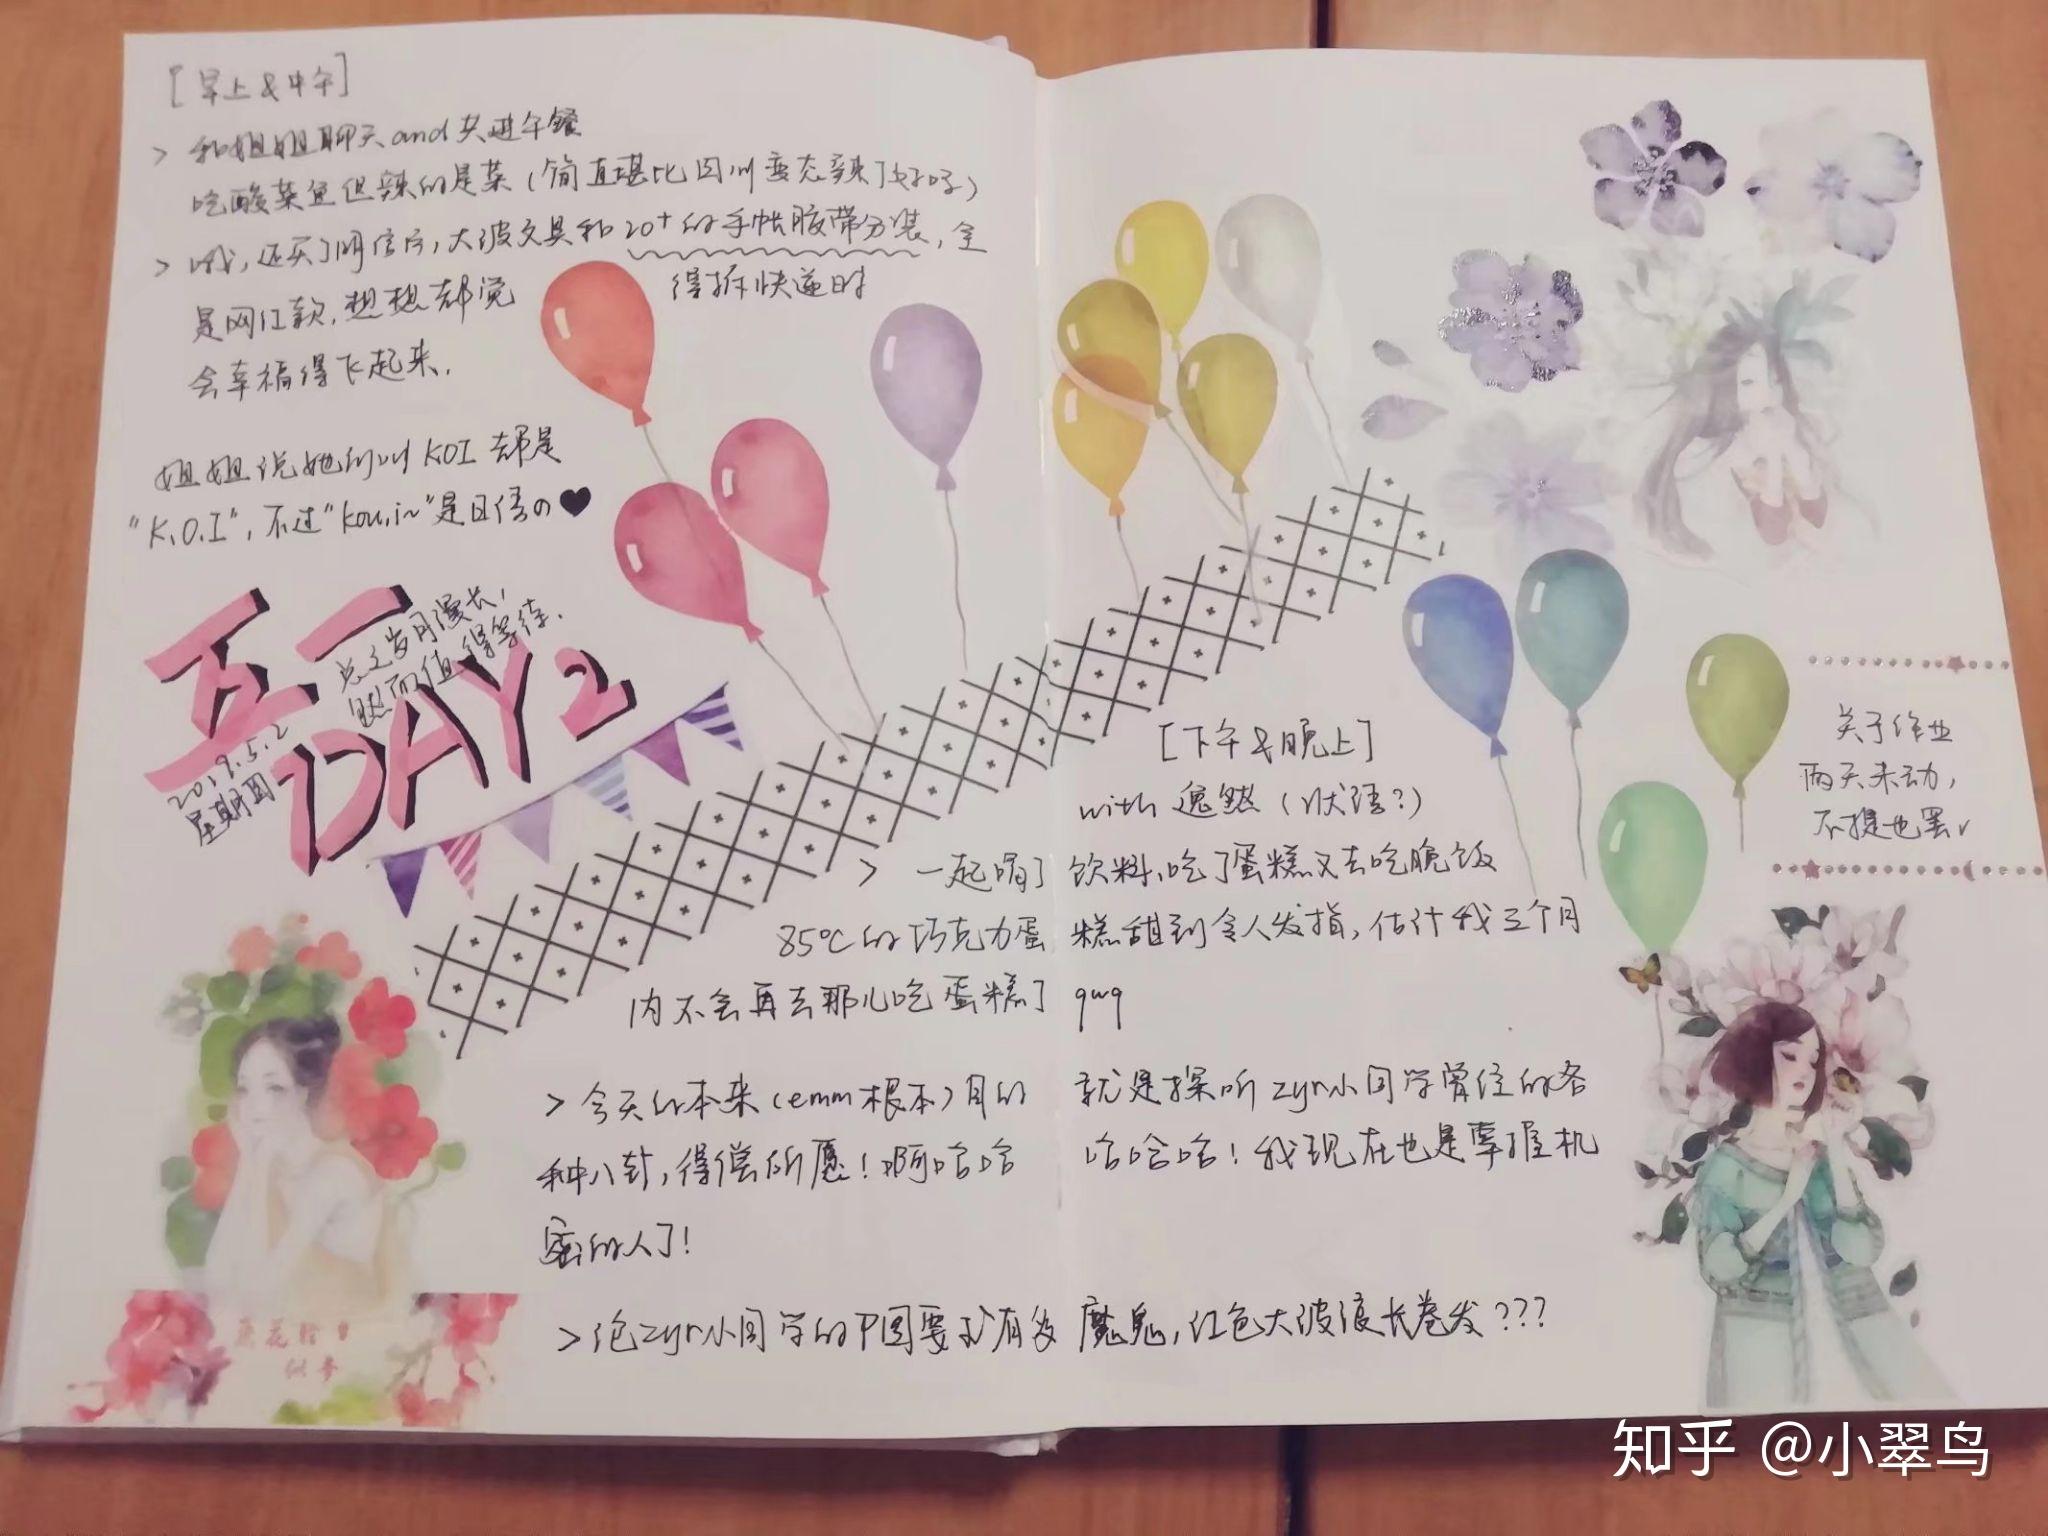 [早上&中午]
> 和姐姐聊天and共进午餐
吃酸菜鱼但辣的是菜(简直堪比四川变态辣了好吗)
> 哦,还买了明信片,大波文具和20+的手帐胶带分装,全
是网红款,想想都觉得拆快递时
会幸福得飞起来.
姐姐说她的叫KOI 都是
"K.O.I",不过"kou.i~"是日语の♥
五一
DAY2
总之岁月漫长,
然而值得等待.
2019.5.2
星期四
[下午&晚上]
with 逸然(状语?)
> 一起喝了饮料、吃了蛋糕又去吃晚饭
85℃的巧克力蛋糕甜到令人发指,估计我三个月
内不会再去那儿吃蛋糕了 qwq
> 今天的本来(emm根本)目的就是探听zyr小同学曾经的各
种八卦,得偿所愿!啊哈哈哈哈哈!我现在也是掌握机
密的人了!
> zyr小同学的P图要求有多魔鬼,红色大波浪长卷发???
关于作业
两天未动,
不提也罢√
似梦
知乎 @小翠鸟